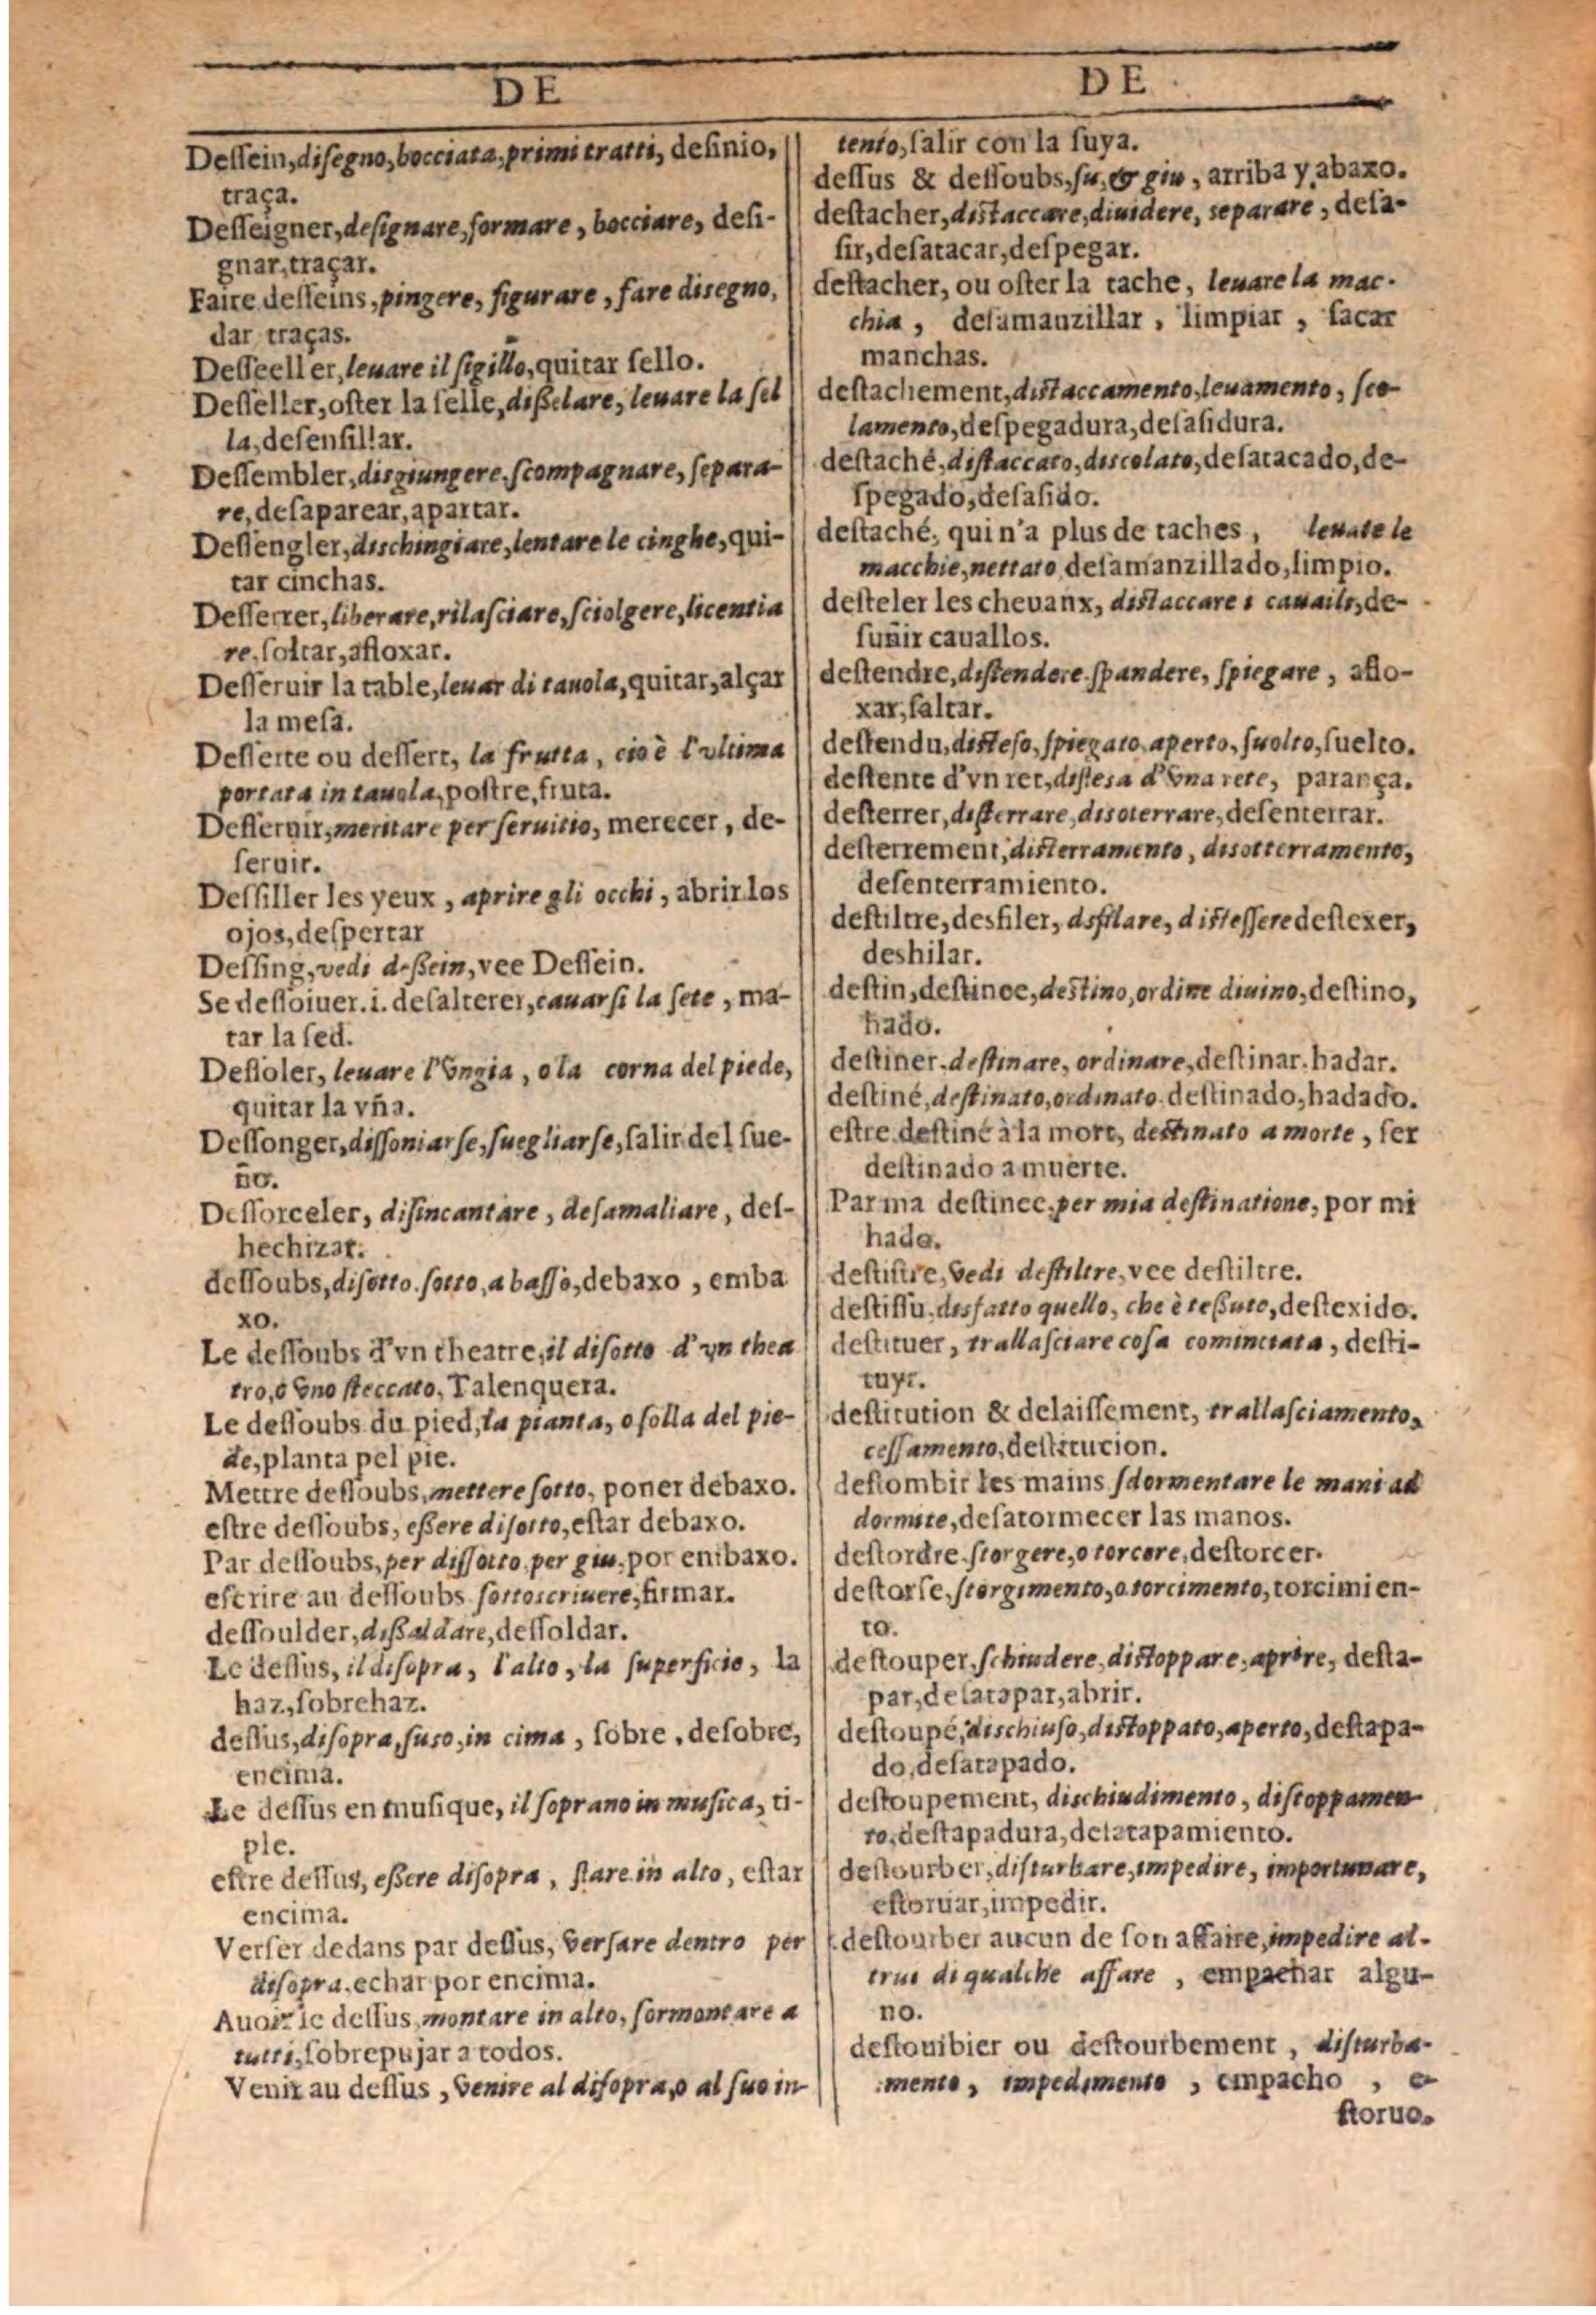 DE
Deſſein, diſegno, bocciata, primi tratti, deſinio,
traça.
Deſſeigner, deſignare, formare, bocciare, deſi-
gnar, traçar.
Faire deſſeins, pingere, figurare, fare disegno,
dar traças.
Deſſeeller, leuare il ſigillo, quitar ſello.
Deſſeller, oſter la ſelle, diſſelare, leuare la ſel
la, deſenſillar.
Deſſembler, disgiungere, ſcompagnare, ſepara-
re, deſaparear, apartar.
Deſſengler, dischingiare, lentare le cinghe, qui-
tar cinchas.
Deſſerrer, liberare, rilaſciare, ſciolgere, licentia
re, ſoltar, afloxar.
Deſſeruir la table, leuar di tauola, quitar, alçar
la meſa.
Deſſerte ou deſſert, la frutta, cio è l'vltima
portata in tauola, poſtre, fruta.
Deſſeruir, meritare per ſeruitio, merecer, de-
ſeruir.
Deſſiller les yeux, aprire gli occhi, abrir los
ojos, deſpertar
Deſſing, vedi deßein, vee Deſſein.
Se deſſoiuer. i. deſalterer, cauarſi la ſete, ma-
tar la ſed.
Deſſoler, leuare l'vngia, o la corna del piede,
quitar la vña.
Deſſonger, diſſoniarſe, ſuegliarſe, ſalir del ſue-
ño.
Deſſorceler, diſincantare, deſamaliare, deſ-
hechizar.
deſſoubs, diſotto. ſotto, a baſſo, debaxo, emba
xo.
Le deſſoubs d'vn theatre, il diſotto d'vn thea
tro, o vno ſteccato, Talenquera.
Le deſſoubs du pied, la pianta, o ſolla del pie-
de, planta pel pie.
Mettre deſſoubs, mettere ſotto, poner debaxo.
eſtre deſſoubs, eßere diſotto, eſtar debaxo.
Par deſſoubs, per diſſotto, per giu, por enibaxo.
eſcrire au deſſoubs ſottoscriuere, firmar.
deſſoulder, dißaldare, deſſoldar.
Le deſſus, il diſopra, l'alto, la ſuperficie, la
haz, ſobrehaz.
deſſus, diſopra, ſuſo, in cima, ſobre, deſobre,
encima.
Le deſſus en muſique, il ſoprano in muſica, ti-
ple.
eſtre deſſus, eßere diſopra, ſtare in alto, eſtar
encima.
Verſer dedans par deſſus, verſare dentro per
diſopra, echar por encima.
Auoir le deſſus, montare in alto, ſormontare a
tutti, ſobrepujar a todos.
Venir au deſſus, venire al diſopra, o al ſuo in-
DE
tento, ſalir con la ſuya.
deſſus & deſſoubs, ſu, & giu, arriba y abaxo.
deſtacher, diſtaccare, diuidere, separare, deſa-
ſir, deſatacar, deſpegar.
deſtacher, ou oſter la tache, leuare la mac-
chia, deſamanzillar, limpiar, ſacar
manchas.
deſtachement, diſtaccamento, leuamento, ſco-
lamento, deſpegadura, deſaſidura.
deſtaché, diſtaccato, discolato, deſatacado, de-
ſpegado, deſaſido.
deſtaché, qui n'a plus de taches, leuate le
macchie, nettato, deſamanzillado, limpio.
deſteler les cheuanx, diſtaccare i cauaili, de-
ſuñir cauallos.
deſtendre, diſtendere, ſpandere, ſpiegare, aflo-
xar, ſaltar.
deſtendu, diſteſo, ſpiegato, aperto, ſuolto, ſuelto.
deſtente d'vn ret, diſtesa d'vna rete, parança.
deſterrer, diſterrare, disoterrare, deſenterrar.
deſterrement, diſterramento, disotterramento,
deſenterramiento.
deſtiltre, desfiler, disfilare, diſteſſere deſtexer,
deshilar.
deſtin, deſtinee, deſtino, ordine diuino, deſtino,
hado.
deſtiner, deſtinare, ordinare, deſtinar, hadar.
deſtiné, deſtinato, ordinato, deſtinado, hadado.
eſtre deſtiné à la mort, deſtinato a morte, ſer
deſtinado a muerte.
Par ma deſtinee, per mia deſtinatione, por mi
hado.
deſtiſtre, vedi deſtiltre, vee deſtiltre.
deſtiſſu, disfatto quello, che è teßuto, deſtexido.
deſtituer, trallaſciare coſa cominciata, deſti-
tuyr.
deſtitution & delaiſſement, trallaſciamento,
ceſſamento, deſtitucion.
deſtombir les mains ſdormentare le mani ad
dormite, deſatormecer las manos.
deſtordre, ſtorgere, o torcere, deſtorcer.
deſtorſe, ſtorgimento, o torcimento, torcimien-
to.
deſtouper, ſchiudere, diſtoppare, aprire, deſta-
par, deſatapar, abrir.
deſtoupé, dischiuſo, diſtoppato, aperto, deſtapa-
do, deſatapado.
deſtoupement, dischiudimento, diſtoppamen-
to, deſtapadura, deſatapamiento.
deſtourber, diſturbare, impedire, importunare,
eſtoruar, impedir.
deſtourber aucun de ſon affaire, impedire al-
trui di qualche affare, empachar algu-
no.
deſtouibier ou deſtourbement, diſturba-
mento, impedimento, empacho, e-
ſtoruo.